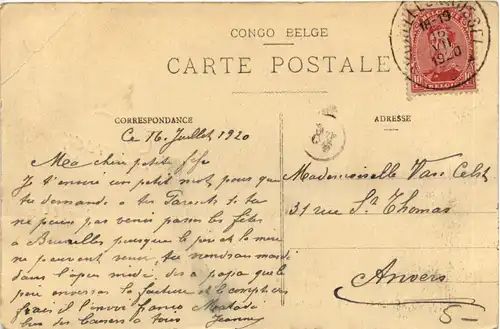 CONGO BELGE
CARTE POSTALE
CORRESPONDANCE
ADRESSE
Ce 16 Juillet 1920
Ma chère petite
Je t'envoie un petit mot pour que
tu demande à tes Parents si tu
ne peux pas venir passer les fêtes
à Bruxelles puisque le père et la mère
ne peuvent venir, tu viendras mardi
dans l'après midi, dis à papa que le
père enverra la facture
franco Matadi
bons baisers à tous Jeanne
Mademoiselle Van Celst
31 rue St Thomas
Anvers
5-